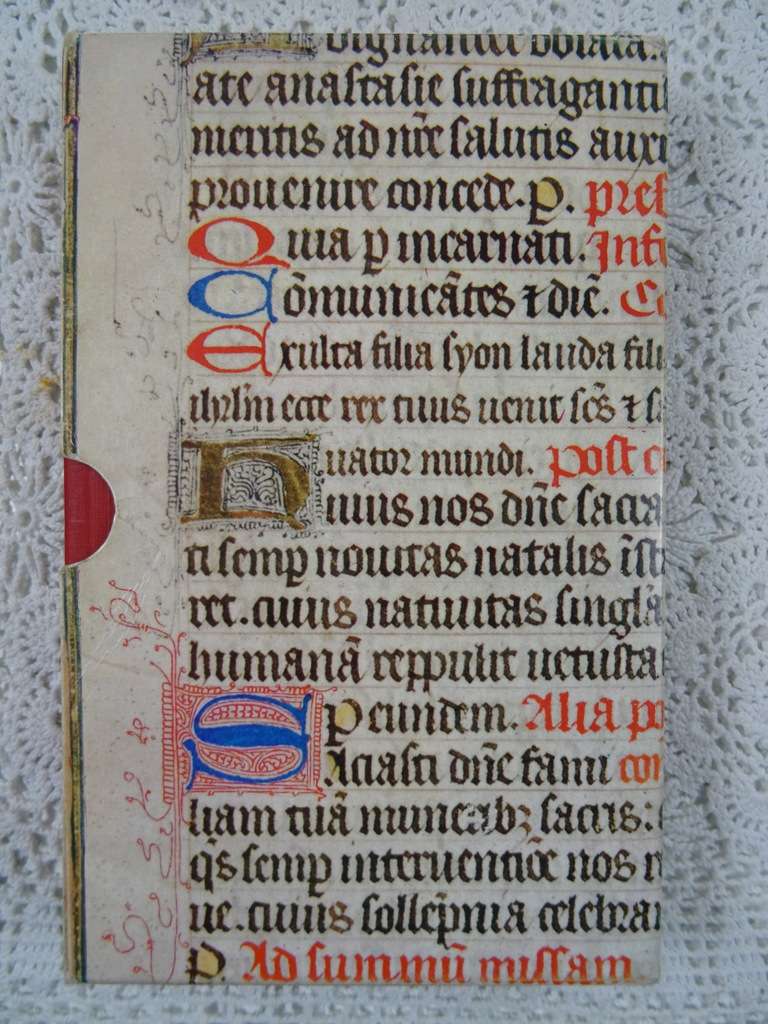 dignanter oblata.
ate anastasie suffraganti
meritis ad nr̄e salutis auxi
prouenire concede. p. pref
Quia p incarnati. Inf
Cōmunicātes ⁊ dic̄. Co
Exulta filia syon lauda fili
ihrl̄m ecce rex tuus uenit sc̄s ⁊ sa
uator mundi. post c
Huius nos dn̄e sacra
ti semp nouitas natalis īst
ret. cuius natiuitas singla
humanā reppulit uetusta
P eundem. Alia po
Saciasti dn̄e fami con
liam tuā muneribꝫ sacris:
q̄s semp interuentiōe nos r
ue. cuius sollēpnia celebra
p. Ad summū missam